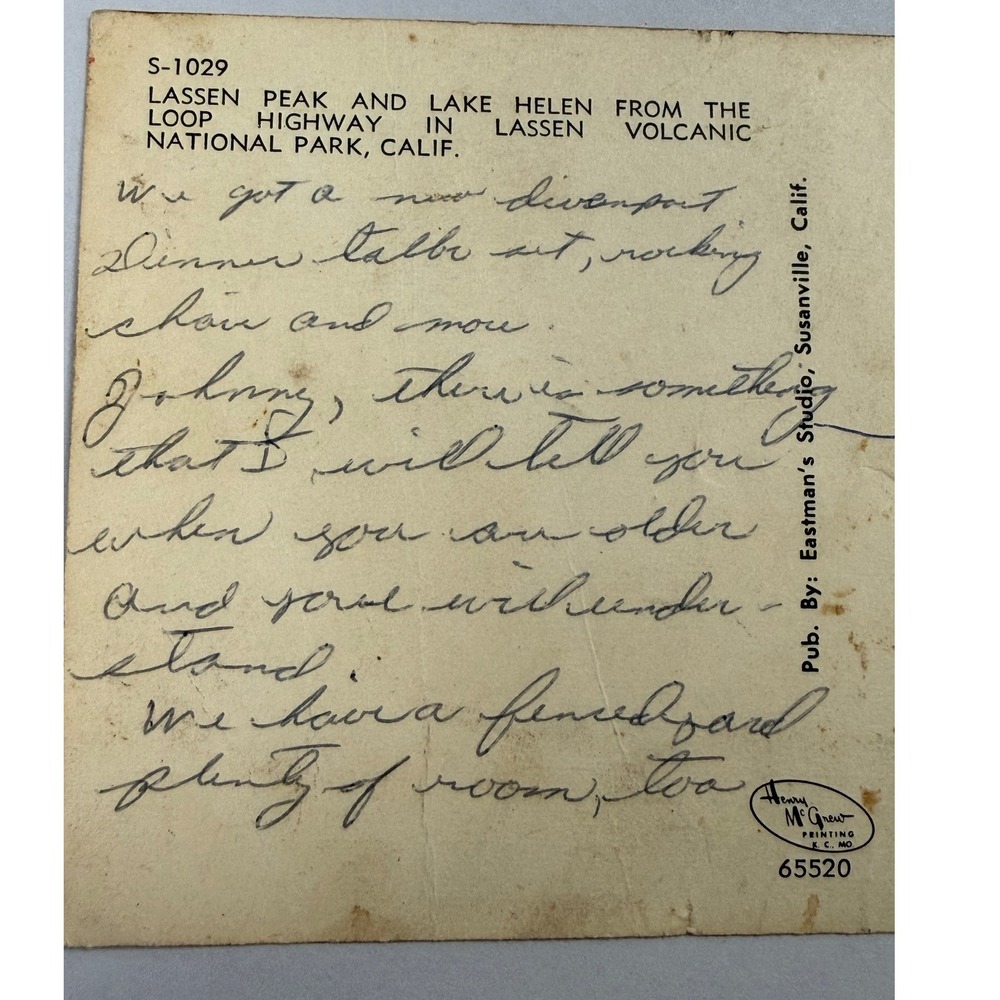 S-1029
LASSEN PEAK AND LAKE HELEN FROM THE
LOOP HIGHWAY IN LASSEN VOLCANIC
NATIONAL PARK, CALIF.
We got a new divenport
Dinner table set, rocking
chair and more
Johnny, there is something
that I will tell you
when you are older
and you will under-
stand.
We have a fenced yard
plenty of room, too
Pub. By: Eastman's Studio, Susanville, Calif.
Henry
McGrew
PRINTING
K. C., MO.
65520